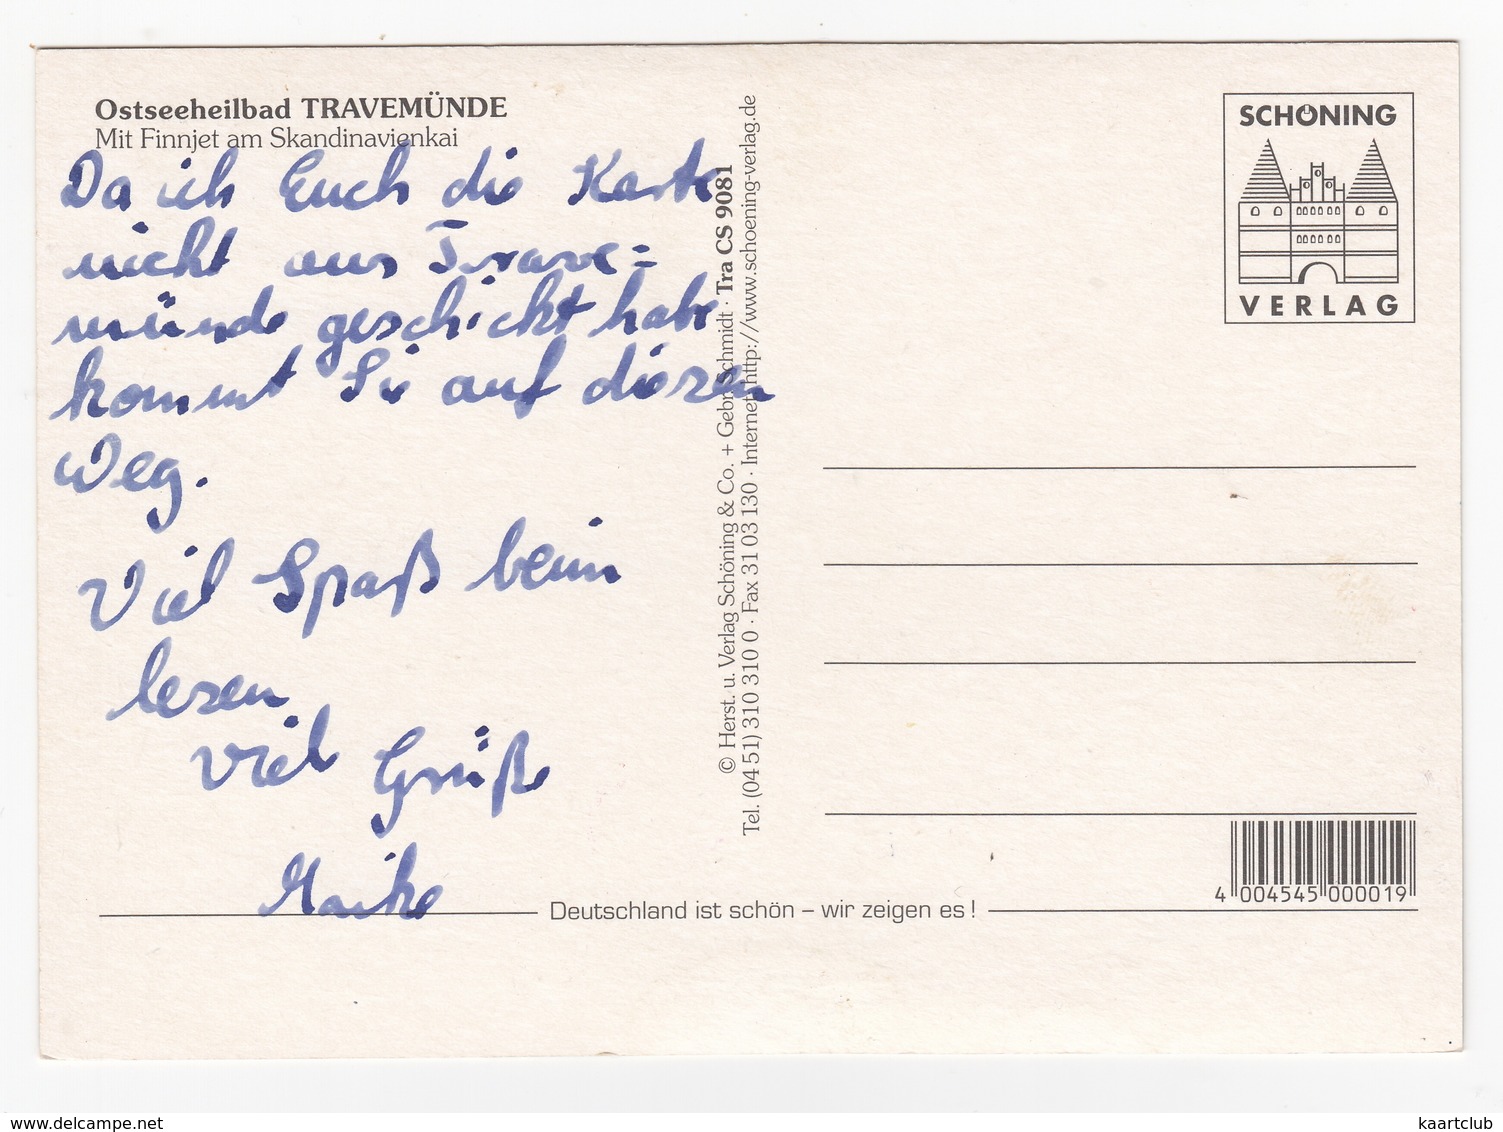 Ostseeheilbad TRAVEMÜNDE
Mit Finnjet am Skandinavienkai
Da ich Euch die Karte
nicht aus Trave=
münde geschickt habe
kommt Sie auf diesen
Weg.
Viel Spaß beim
lesen
Viel Grüße
Maike
© Herst. u. Verlag Schöning & Co. + Gebr. Schmidt · Tra CS 9081
Tel. (04 51) 310 310 0 · Fax 31 03 130 · Internet http://www.schoening-verlag.de
SCHÖNING
VERLAG
4 004545 000019
Deutschland ist schön – wir zeigen es !
www.delcampe.net
kaartclub